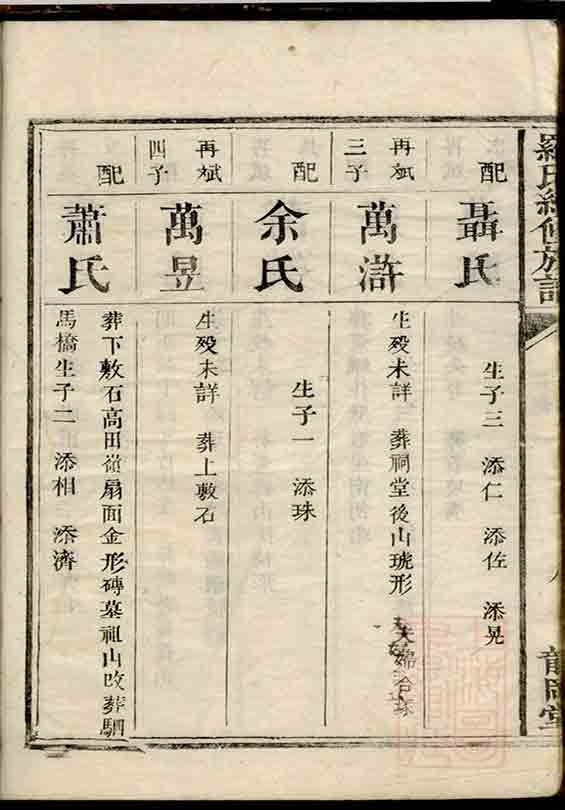 羅氏續修族譜
配
聶氏
生子三 添仁 添佐 添晃
再斌
三子
萬滸
生殁未詳 葬祠堂後山琥形 夫婦合
配
余氏
生子一 添珠
再斌
四子
萬昱
生殁未詳 葬上敷石
配
蕭氏
葬下敷石高田嶺扇面金形磚墓祖山改葬駟
馬橋生子二 添相 添濟